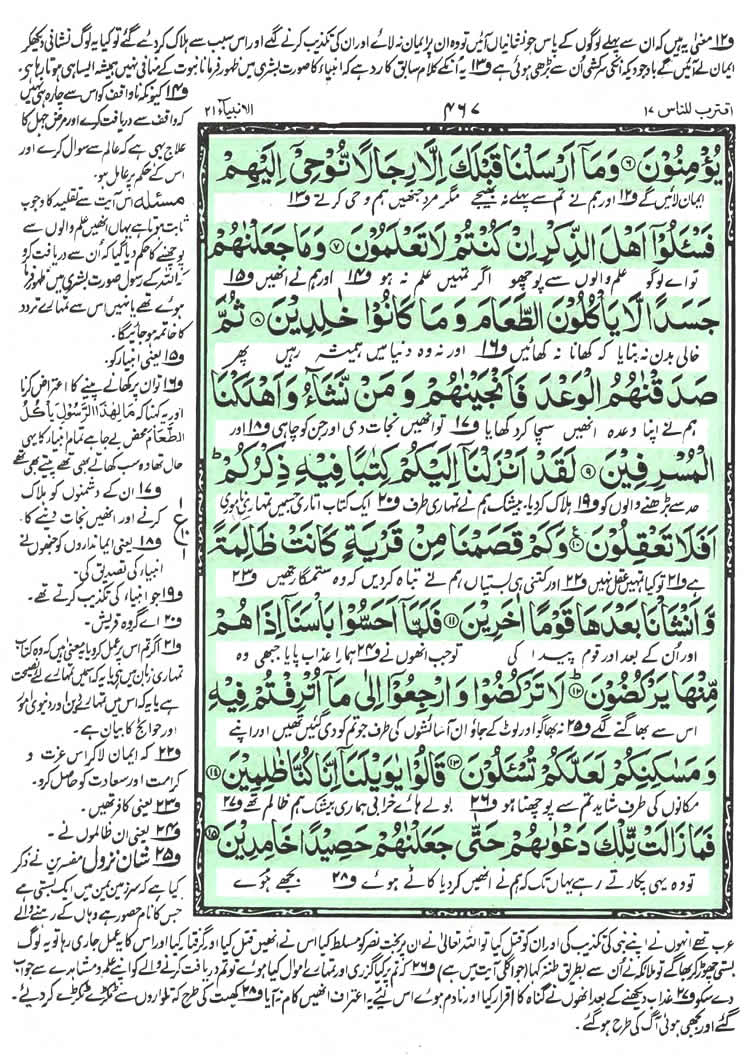 و۱۲ معنیٰ یہ ہیں کہ ان سے پہلے لوگوں کے پاس جو نشانیاں آئیں تو وہ ان پر ایمان نہ لائے اور ان کی تکذیب کرنے لگے اور اس سبب سے ہلاک کردیئے گئے تو کیا یہ لوگ نشانی دیکھ کر
ایمان لے آئیں گے باوجودیکہ انکی سرکشی اُن سے بڑھی ہوئی ہے و۱۳ یہ اُنکے کلام سابق کا رد ہے کہ انبیاء کا صورت بشری میں ظہور فرمانا نبوت کے منافی نہیں ہمیشہ ایسا ہی ہوتا رہا ہے۔
اقترب للناس ۱۷
۴۶۷
الانبیاء ۲۱
يُؤْمِنُوْنَ ۶ وَمَاۤ اَرْسَلْنَا قَبْلَكَ اِلَّا رِجَالًا نُّوْحِیْۤ اِلَیْهِمْ
ایمان لائیں گے و۱۲ اور ہم نے تم سے پہلے نہ بھیجے مگر مرد جنھیں ہم وحی کرتے و۱۳
فَسْـَٔلُوْۤا اَهْلَ الذِّكْرِ اِنْ كُنْتُمْ لَا تَعْلَمُوْنَ ۷ وَمَا جَعَلْنٰهُمْ
تو اے لوگو علم والوں سے پوچھو اگر تمہیں علم نہ ہو و۱۴ اور ہم نے انھیں و۱۵
جَسَدًا لَّا یَاْكُلُوْنَ الطَّعَامَ وَمَا كَانُوْا خٰلِدِیْنَ ۸ ثُمَّ
خالی بدن نہ بنایا کہ کھانا نہ کھائیں و۱۶ اور نہ وہ دنیا میں ہمیشہ رہیں پھر
صَدَقْنٰهُمُ الْوَعْدَ فَاَنْجَیْنٰهُمْ وَمَنْ نَّشَآءُ وَاَهْلَكْنَا
ہم نے اپنا وعدہ انھیں سچا کر دکھایا و۱۷ تو انھیں نجات دی اور جن کو چاہی و۱۸ اور
الْمُسْرِفِیْنَ ۹ لَقَدْ اَنْزَلْنَاۤ اِلَیْكُمْ كِتٰبًا فِیْهِ ذِكْرُكُمْ ؕ
حد سے بڑھنے والوں کو و۱۹ ہلاک کردیا۔ بیشک ہم نے تمہاری طرف و۲۰ ایک کتاب اتاری جسمیں تمہاری ناموری
اَفَلَا تَعْقِلُوْنَ ۱۰ وَكَمْ قَصَمْنَا مِنْ قَرْیَةٍ كَانَتْ ظَالِمَةً
ہے و۲۱ تو کیا تمہیں عقل نہیں و۲۲ اور کتنی ہی بستیاں ہم نے تباہ کردیں کہ وہ ستمگار تھیں و۲۳
وَّاَنْشَاْنَا بَعْدَهَا قَوْمًا اٰخَرِیْنَ ۱۱ فَلَمَّاۤ اَحَسُّوْا بَاْسَنَاۤ اِذَا هُمْ
اور ان کے بعد اور قوم پیدا کی تو جب انھوں نے و۲۴ ہمارا عذاب پایا جبھی وہ
مِّنْهَا یَرْكُضُوْنَ ؕ ۱۲ لَا تَرْكُضُوْا وَارْجِعُوْۤا اِلٰی مَاۤ اُتْرِفْتُمْ فِیْهِ
اس سے بھاگنے لگے و۲۵ نہ بھاگو اور لوٹ کے جاؤ ان آسائشوں کی طرف جو تم کو دی گئیں تھیں اور اپنے
وَمَسٰكِنِكُمْ لَعَلَّكُمْ تُسْـَٔلُوْنَ ۱۳ قَالُوْا یٰوَیْلَنَاۤ اِنَّا كُنَّا ظٰلِمِیْنَ ۱۴
مکانوں کی طرف شاید تم سے پوچھنا ہو و۲۶ بولے ہائے خرابی ہماری بیشک ہم ظالم تھے و۲۷
فَمَا زَالَتْ تِّلْكَ دَعْوٰىهُمْ حَتّٰی جَعَلْنٰهُمْ حَصِیْدًا خٰمِدِیْنَ ۱۵
تو وہ یہی پکارتے رہے یہاں تک کہ ہم نے انھیں کردیا کاٹے ہوئے و۲۸ بجھے ہوئے
و۱۴ کیونکہ ناواقف کو اس سے چارہ ہی نہیں
کہ واقف سے دریافت کرے اور مرض جہل کا
علاج یہی ہے کہ عالم سے سوال کرے اور
اس کے حکم پر عامل ہو۔
مسئلہ اس آیت سے تقلید کا وجوب
ثابت ہوتا ہے یہاں انھیں علم والوں سے
پوچھنے کا حکم دیا گیا کہ اُن سے دریافت کرو
کہ اللہ کے رسول صورت بشری میں ظہور فرما
ہوئے تھے یا نہیں اس سے تمہارے تردد
کا خاتمہ ہو جائیگا۔
و۱۵ یعنی انبیاء کو۔
و۱۶ تو اُن پر کھانے پینے کا اعتراض کرنا
اور یہ کہنا کہ مَا لِهٰذَا الرَّسُوْلِ یَاْكُلُ
الطَّعَامَ محض بے جا ہے تمام انبیاء کا یہی
حال تھا وہ سب کھاتے بھی تھے پیتے بھی تھے
و۱۷ ان کے دشمنوں کو ہلاک
کرنے اور انھیں نجات دینے کا۔
و۱۸ یعنی ایمانداروں کو جنھوں نے
انبیاء کی تصدیق کی۔
و۱۹ جو انبیاء کی تکذیب کرتے تھے۔
و۲۰ اے گروہ قریش۔
و۲۱ اگر تم اس پر عمل کرو یا یہ معنیٰ ہیں کہ وہ کتاب
تمہاری زبان میں ہے یا یہ کہ اسمیں تمہارے لئے نصیحت
ہے یا یہ کہ اس میں تمہارے دین اور دنیوی امور
اور حوائج کا بیان ہے۔
و۲۲ کہ ایمان لا کر اس عزت و
کرامت اور سعادت کو حاصل کرو۔
و۲۳ یعنی کافر تھیں۔
و۲۴ یعنی ان ظالموں نے۔
و۲۵ شان نزول مفسرین نے ذکر
کیا ہے کہ سرزمین یمن میں ایک بستی ہے
جس کا نام حصور ہے وہاں کے رہنے والے
ع
۱
۱۰
۱
عرب تھے انہوں نے اپنے نبی کی تکذیب کی اور ان کو قتل کیا تو اللہ تعالیٰ نے ان پر بخت نصر کو مسلط کیا اس نے انھیں قتل کیا اور گرفتار کیا اور اس کا یہ عمل جاری رہا تو یہ لوگ
بستی چھوڑ کر بھاگے تو ملائکہ نے اُن سے بطریق طنز کہا (جو اگلی آیت میں ہے) و۲۶ کہ تم پر کیا گزری اور تمہارے اموال کیا ہوئے تو تم دریافت کرنے والے کو اپنے علم و مشاہدے سے جواب
دے سکو و۲۷ عذاب دیکھنے کے بعد انھوں نے گناہ کا اقرار کیا اور نادم ہوئے اس لئے یہ اعتراف انھیں کام نہ آیا و۲۸ کھیت کی طرح کہ تلواروں سے ٹکڑے ٹکڑے کر دیئے۔
گئے اور بجھی ہوئی آگ کی طرح ہوگئے۔